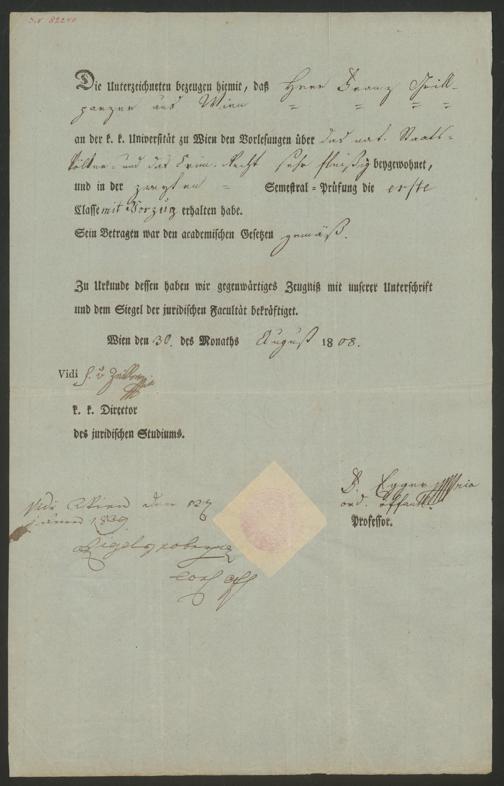 Die Unterzeichneten bezeugen hiemit, daß Herr Franz Grill-
parzer aus Wien
an der k. k. Universität zu Wien den Vorlesungen über das nat. Staats-
Völker- und das Krim. Recht sehr fleißig beygewohnet,
und in der zweyten Semestral-Prüfung die erste
Classe mit Vorzug erhalten habe.
Sein Betragen war den academischen Gesetzen gemäß.
Zu Urkunde dessen haben wir gegenwärtiges Zeugniß mit unserer Unterschrift
und dem Siegel der juridischen Facultät bekräftiget.
Wien den 30. des Monaths August 1808.
Vidi
k. k. Director
des juridischen Studiums.
D. Egger
ord. öffentl.
Professor.
Wien den
1839